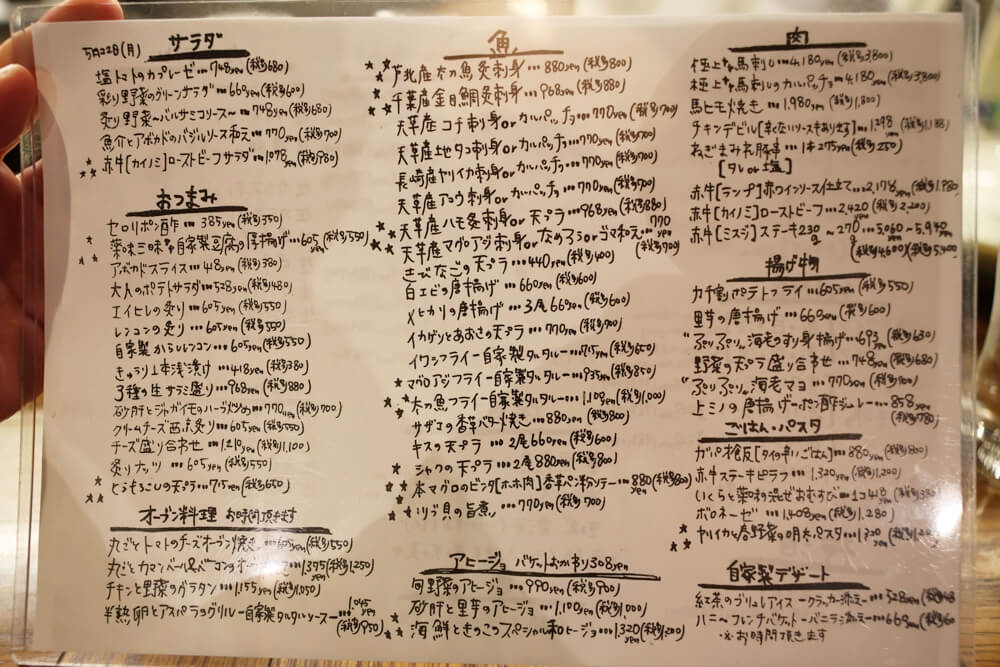 5月22日(月)
サラダ
塩トマトのカプレーゼ…748yen(税抜680)
彩り野菜のグリーンサラダ…660yen(税抜600)
炙り野菜〜バルサミコソース〜…748yen(税抜680)
魚介とアボカドのバジルソース和え…770yen(税抜700)
赤牛[カイノミ]ローストビーフサラダ…1,078yen(税抜980)
おつまみ
セロリポン酢…385yen(税抜350)
薬味三昧!!自家製豆腐の厚揚げ…605yen(税抜550)
アボカドスライス…418yen(税抜380)
大人のポテトサラダ…528yen(税抜480)
エイヒレの炙り…605yen(税抜550)
レンコンの炙り…605yen(税抜550)
自家製からしレンコン…605yen(税抜550)
きゅうり1本浅漬け…418yen(税抜380)
3種の生サラミ盛り…968yen(税抜880)
砂肝とジャガイモのハーブ炒め…770yen(税抜700)
クリームチーズ西京炙り…605yen(税抜550)
チーズ盛り合わせ…1,210yen(税抜1,100)
炙りナッツ…605yen(税抜550)
とうもろこしの天プラ…715yen(税抜650)
オーブン料理 お時間頂きます
丸ごとトマトのチーズオーブン焼き…605yen(税抜550)
丸ごとカマンベール&ベーコンのオーブン…1,375yen(税抜1,250)
チキンと野菜のグラタン…1,155yen(税抜1,050)
半熟卵とアスパラのグリル〜自家製タルタルソース〜…1,045yen(税抜950)
魚
芦北産太刀魚炙刺身…880yen(税抜800)
千葉産金目鯛炙刺身…968yen(税抜880)
天草産コチ刺身orカルパッチョ…770yen(税抜700)
天草産地ダコ刺身orカルパッチョ…770yen(税抜700)
長崎産ヤリイカ刺身orカルパッチョ…770yen(税抜700)
天草産アコウ刺身orカルパッチョ…770yen(税抜700)
天草産ハモ炙刺身or天プラ…968yen(税抜880)
天草産マグロアジ刺身orなめろうorゴマ和え…770yen(税抜700)
きびなごの天プラ…440yen(税抜400)
白エビの唐揚げ…660yen(税抜600)
メヒカリの唐揚げ…3尾660yen(税抜600)
イカゲソとあおさの天プラ…770yen(税抜700)
イワシフライ自家製タルタル…715yen(税抜650)
マグロアジフライ自家製タルタル…935yen(税抜850)
太刀魚フライ自家製タルタル…1,100yen(税抜1,000)
サザエの香草バター焼き…880yen(税抜800)
キスの天プラ…2尾660yen(税抜600)
シャクの天プラ…2尾880yen(税抜800)
本マグロのビンタ[ホホ肉]香草パン粉ソテー…880yen(税抜800)
ツブ貝の旨煮…770yen(税抜700)
アヒージョ バゲットおかわり308yen
旬野菜のアヒージョ…990yen(税抜900)
砂肝と里芋のアヒージョ…1,100yen(税抜1,000)
海鮮ときのこのスペシャル和ヒージョ…1,320yen(税抜1,200)
肉
極上!!馬刺し…4,180yen(税抜3,800)
極上!!馬刺しのカルパッチョ…4,180yen(税抜3,800)
馬ヒモ焼き…1,980yen(税抜1,800)
チキンデビル[辛くないソースもあります]…1,298yen(税抜1,180)
ねぎまみれ豚串…1本275yen(税抜250)
[タレor塩]
赤牛[ランプ]赤ワインソース仕立て…2,178yen(税抜1,980)
赤牛[カイノミ]ローストビーフ…2,420yen(税抜2,200)
赤牛[ミスジ]ステーキ230g〜270g…5,060yen〜5,940yen(税抜4,600)(税抜5,400)
揚げ物
カチ割りポテトフライ…605yen(税抜550)
里芋の唐揚げ…660yen(税抜600)
"ぷりぷり"海老のすり身揚げ…693yen(税抜630)
野菜の天プラ盛り合わせ…748yen(税抜680)
"ぷりぷり"海老マヨ…770yen(税抜700)
上ミノの唐揚げ〜ポン酢ジュレ〜…858yen(税抜780)
ごはん・パスタ
ガパオ飯[タイの辛いごはん]…880yen(税抜800)
赤牛ステーキピラフ…1,320yen(税抜1,200)
いくらと薬味の混ぜおむすび…1コ418yen(税抜380)
ボロネーゼ…1,408yen(税抜1,280)
ヤリイカと春野菜の明太パスタ…1,320yen
自家製デザート
紅茶のブリュレアイス〜クラッカー添え〜…528yen
ハニ〜フレンチバゲット〜バニラ添え〜…660yen
※お時間頂きます